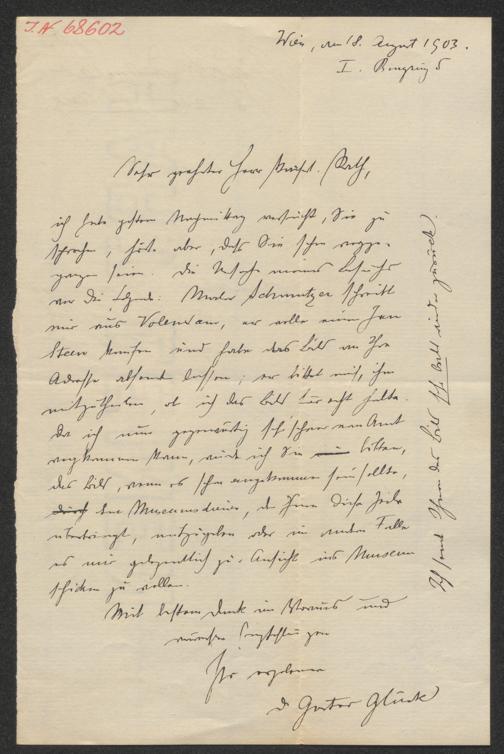 I.N 68602
Wien, am 18. August 1903.
I. Burgring 5
Sehr geehrter Herr kaiserl. Rath,
ich habe gestern Nachmittag versucht, Sie zu
sprechen, hörte aber, daß Sie schon wegge-
gangen seien. Die Ursache meines Besuchs
war die folgende: Maler Schmutzer schreibt
mir aus Volendam, er wolle einen Jan
Steen kaufen und habe das Bild an Ihre
Adresse absenden lassen; er bittet mich, ihm
mitzutheilen, ob ich das Bild für echt halte.
Da ich nun gegenwärtig sehr schwer vom Amt
wegkommen kann, würde ich Sie bitten,
das Bild, wenn es schon angekommen sein sollte,
durch dem Museumsdiener, der Ihnen diese Zeilen
überbringt, mitzugeben oder im andern Falle
es mir gelegentlich zur Ansicht ins Museum
schicken zu wollen.
Mit bestem Dank im Voraus und
Empfehlungen
Ihr ergebener
Dr Gustav Glück
Ich sende Ihnen das Bild sehr bald wieder zurück.